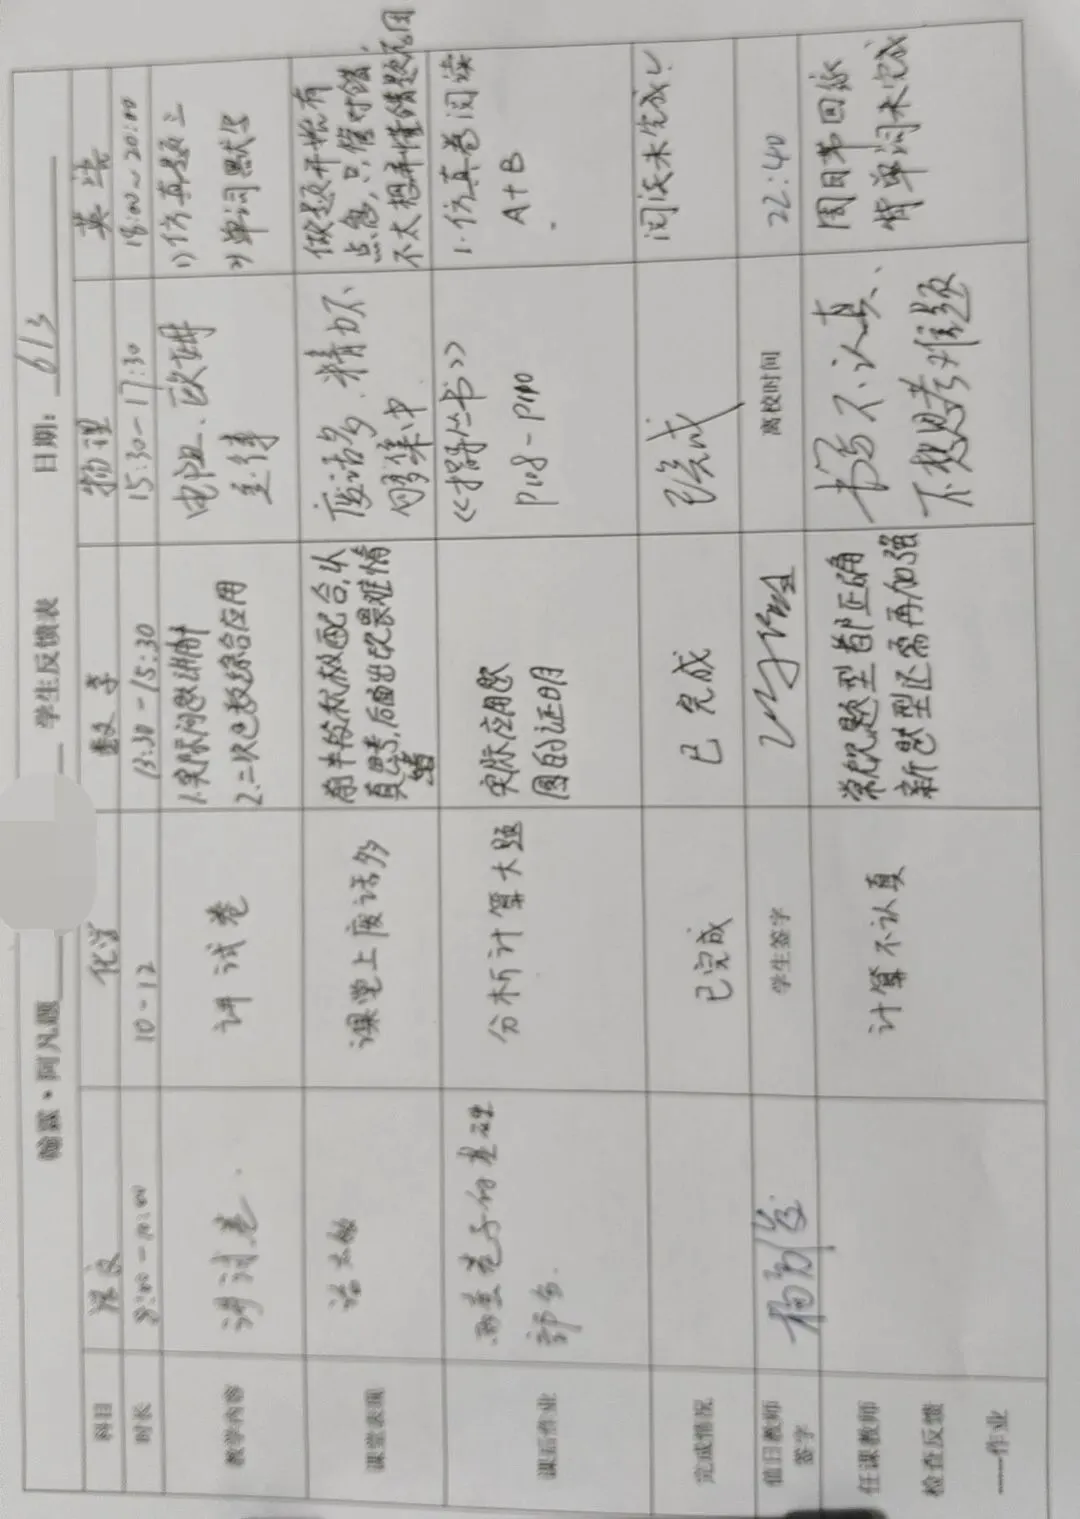 学生反馈表 日期: 6/3
科目 语文 化学 数学 物理 英语
时长 8:00-10:00 10-12 13:30-15:30 15:30-17:30 18:00~20:00
教学内容
讲试卷
讲试卷
1.实际问题讲解
2.二次函数综合应用
电阻、欧姆
1)仿真题三
2)单词默写
课堂表现
话太多
课堂上废话多
前半段积极配合,认
真思考,后面出现畏难情
绪
废话多、精力不
够集中
做题开始有
点急,只管对错,
不太想弄懂错题原因
课后作业
两套卷子的基础
部分
分析计算大题
实际应用题
圆的证明
P108-P110
1.仿真卷阅读
A+B
完成情况
已完成
已完成
已完成
阅读未完成
值日教师
签字
学生签字
离校时间
22:40
任课教师
检查反馈
——作业
计算不认真
常规题型都正确
新题型还需再加强
书写不认真、
不想思考难题
周日节回家
背单词未完成